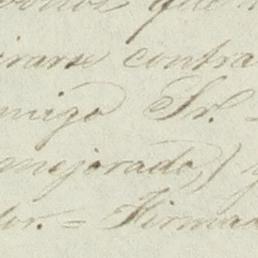 que
irarse contra
migo Sr.
mejorado,) y
or. = Firmad